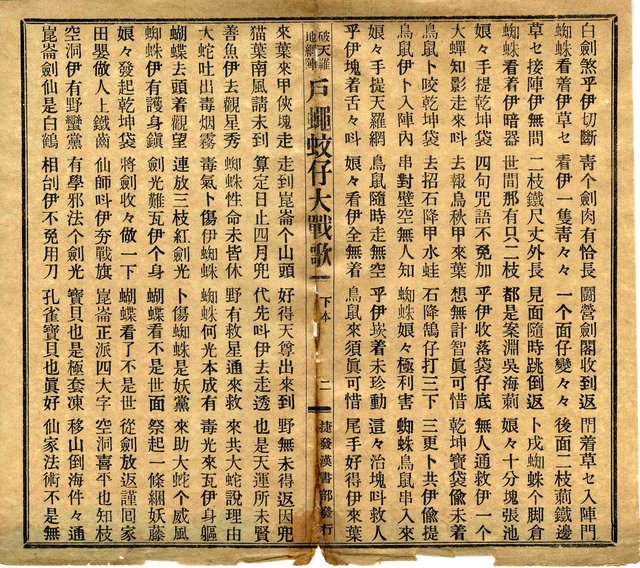 白劍煞乎伊切斷 青个劍肉有恰長 鬪營劍閣收到返 門着草セ入陣門
蜘蛛看着伊草セ 看伊一隻青々々 一个面仔變々々 後面二枝藺鐵邊
草セ接陣伊無問 二枝鐵尺丈外長 見面隨時跳倒返 卜戍蜘蛛个脚倉
蜘蛛看着伊暗器 世間那有只二枝 都是案淵吳海藺 娘々十分塊張池
娘々手提乾坤袋 四句咒語不免加 乎伊收落袋仔底 無人通救伊一个
大蟬知影走來呌 去報鳥秋甲來葉 想無計智眞可惜 乾坤寶袋偸未着
鳥鼠卜咬乾坤袋 去招石降甲水蛙 石降鵠仔打三下 三更卜共伊偸提
鳥鼠伊卜入陣內 串對壁空無人知 蜘蛛娘々極利害 蜘蛛鳥鼠串入來
娘々手提天羅網 鳥鼠隨時走無空 乎伊崁着未珍動 這々治塊呌救人
乎伊塊着舌々呌 娘々看伊全無着 鳥鼠來須眞可惜 尾手好得伊來葉
破天羅地網陣 戶蠅蚊仔大戰歌 下本 二 捷發漢書部發行
來葉來甲俠塊走 走到崑崙个山頭 好得天尊出來到 野無未得返因兜
猫葉南風請未到 算定日止四月兜 代先呌伊去走透 也是天運所未賢
善魚伊去觀星秀 蜘蛛性命未皆休 野有救星通來救 來共大蛇說理由
大蛇吐出毒烟霧 毒氣卜傷伊蜘蛛 蜘蛛何光本成有 毒光來瓦伊身軀
蝴蝶去頭着觀望 連放三枝紅劍光 卜傷蜘蛛是妖黨 來助大蛇个威風
蜘蛛伊有護身鎭 劍光難瓦伊个身 蝴蝶看不是世面 祭起一條綑妖藤
娘々發起乾坤袋 將劍收々做一下 蝴蝶看了不是世 從劍放返謹回家
田嬰做人上鐵齒 仙師呌伊夯戰旗 崑崙正派四大字 空洞喜平也知枝
空洞伊有野蠻黨 有學邪法个劍光 寶貝也是極套凍 移山倒海件々通
崑崙劍仙是白鶴 相刣伊不免用刀 孔雀寶貝也眞好 仙家法術不是無